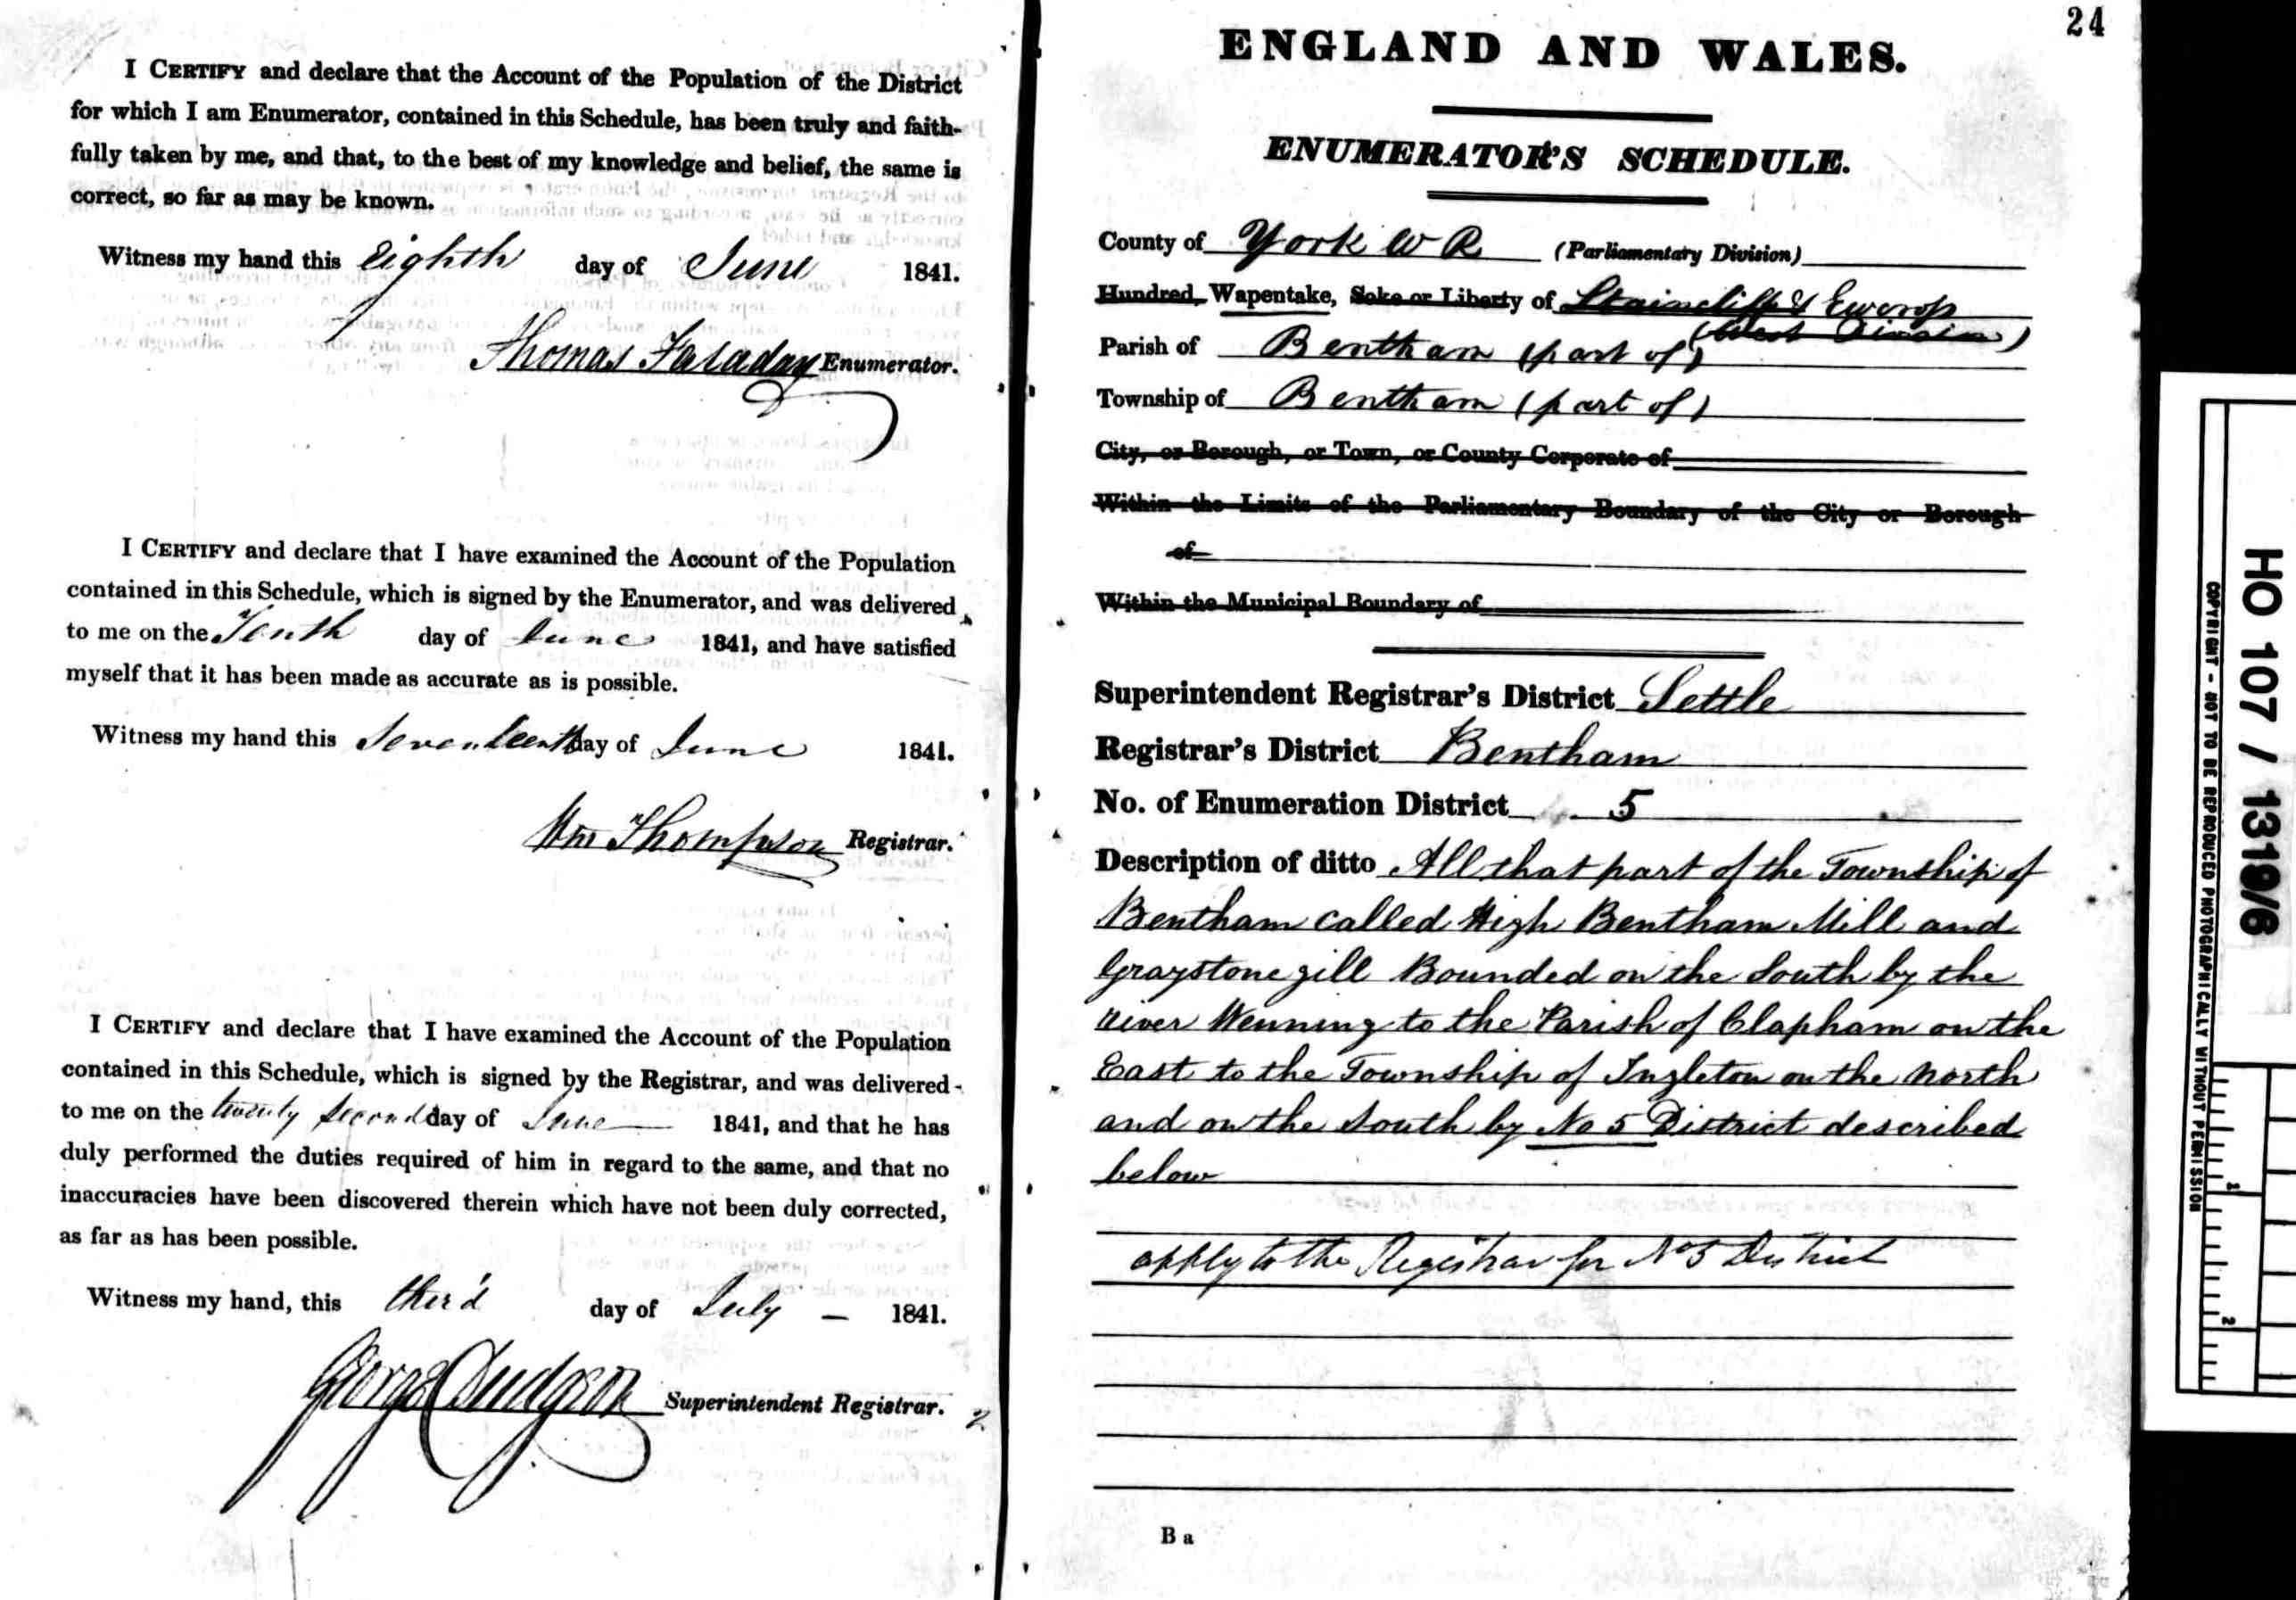 I CERTIFY and declare that the Account of the Population of the District
for which I am Enumerator, contained in this Schedule, has been truly and faith-
fully taken by me, and that, to the best of my knowledge and belief, the same is
correct, so far as may be known.
Witness my hand this eighth day of June 1841.
Thomas Faraday Enumerator.
I CERTIFY and declare that I have examined the Account of the Population
contained in this Schedule, which is signed by the Enumerator, and was delivered
to me on the Tenth day of June 1841, and have satisfied
myself that it has been made as accurate as is possible.
Witness my hand this Seventeenth day of June 1841.
Wm Thompson Registrar.
I CERTIFY and declare that I have examined the Account of the Population
contained in this Schedule, which is signed by the Registrar, and was delivered
to me on the twenty second day of June 1841, and that he has
duly performed the duties required of him in regard to the same, and that no
inaccuracies have been discovered therein which have not been duly corrected,
as far as has been possible.
Witness my hand, this third day of July – 1841.
George Dudgson Superintendent Registrar.
2
24
ENGLAND AND WALES.
ENUMERATOR'S SCHEDULE.
County of York W R (Parliamentary Division)
Hundred, Wapentake, Soke or Liberty of Staincliffe & Ewcross
(West Division)
Parish of Bentham (part of)
Township of Bentham (part of)
City, or Borough, or Town, or County Corporate of
Within the Limits of the Parliamentary Boundary of the City or Borough
of
Within the Municipal Boundary of
Superintendent Registrar's District Settle
Registrar's District Bentham
No. of Enumeration District 5
Description of ditto All that part of the Township of
Bentham called High Bentham Mill and
Graystonegill Bounded on the South by the
river Wenning to the Parish of Clapham on the
East to the Township of Ingleton on the North
and on the South by No 5 District described
below
apply to the Registrar for No 5 District
B a
HO 107 / 1319/6
COPYRIGHT - NOT TO BE REPRODUCED PHOTOGRAPHICALLY WITHOUT PERMISSION
1
2